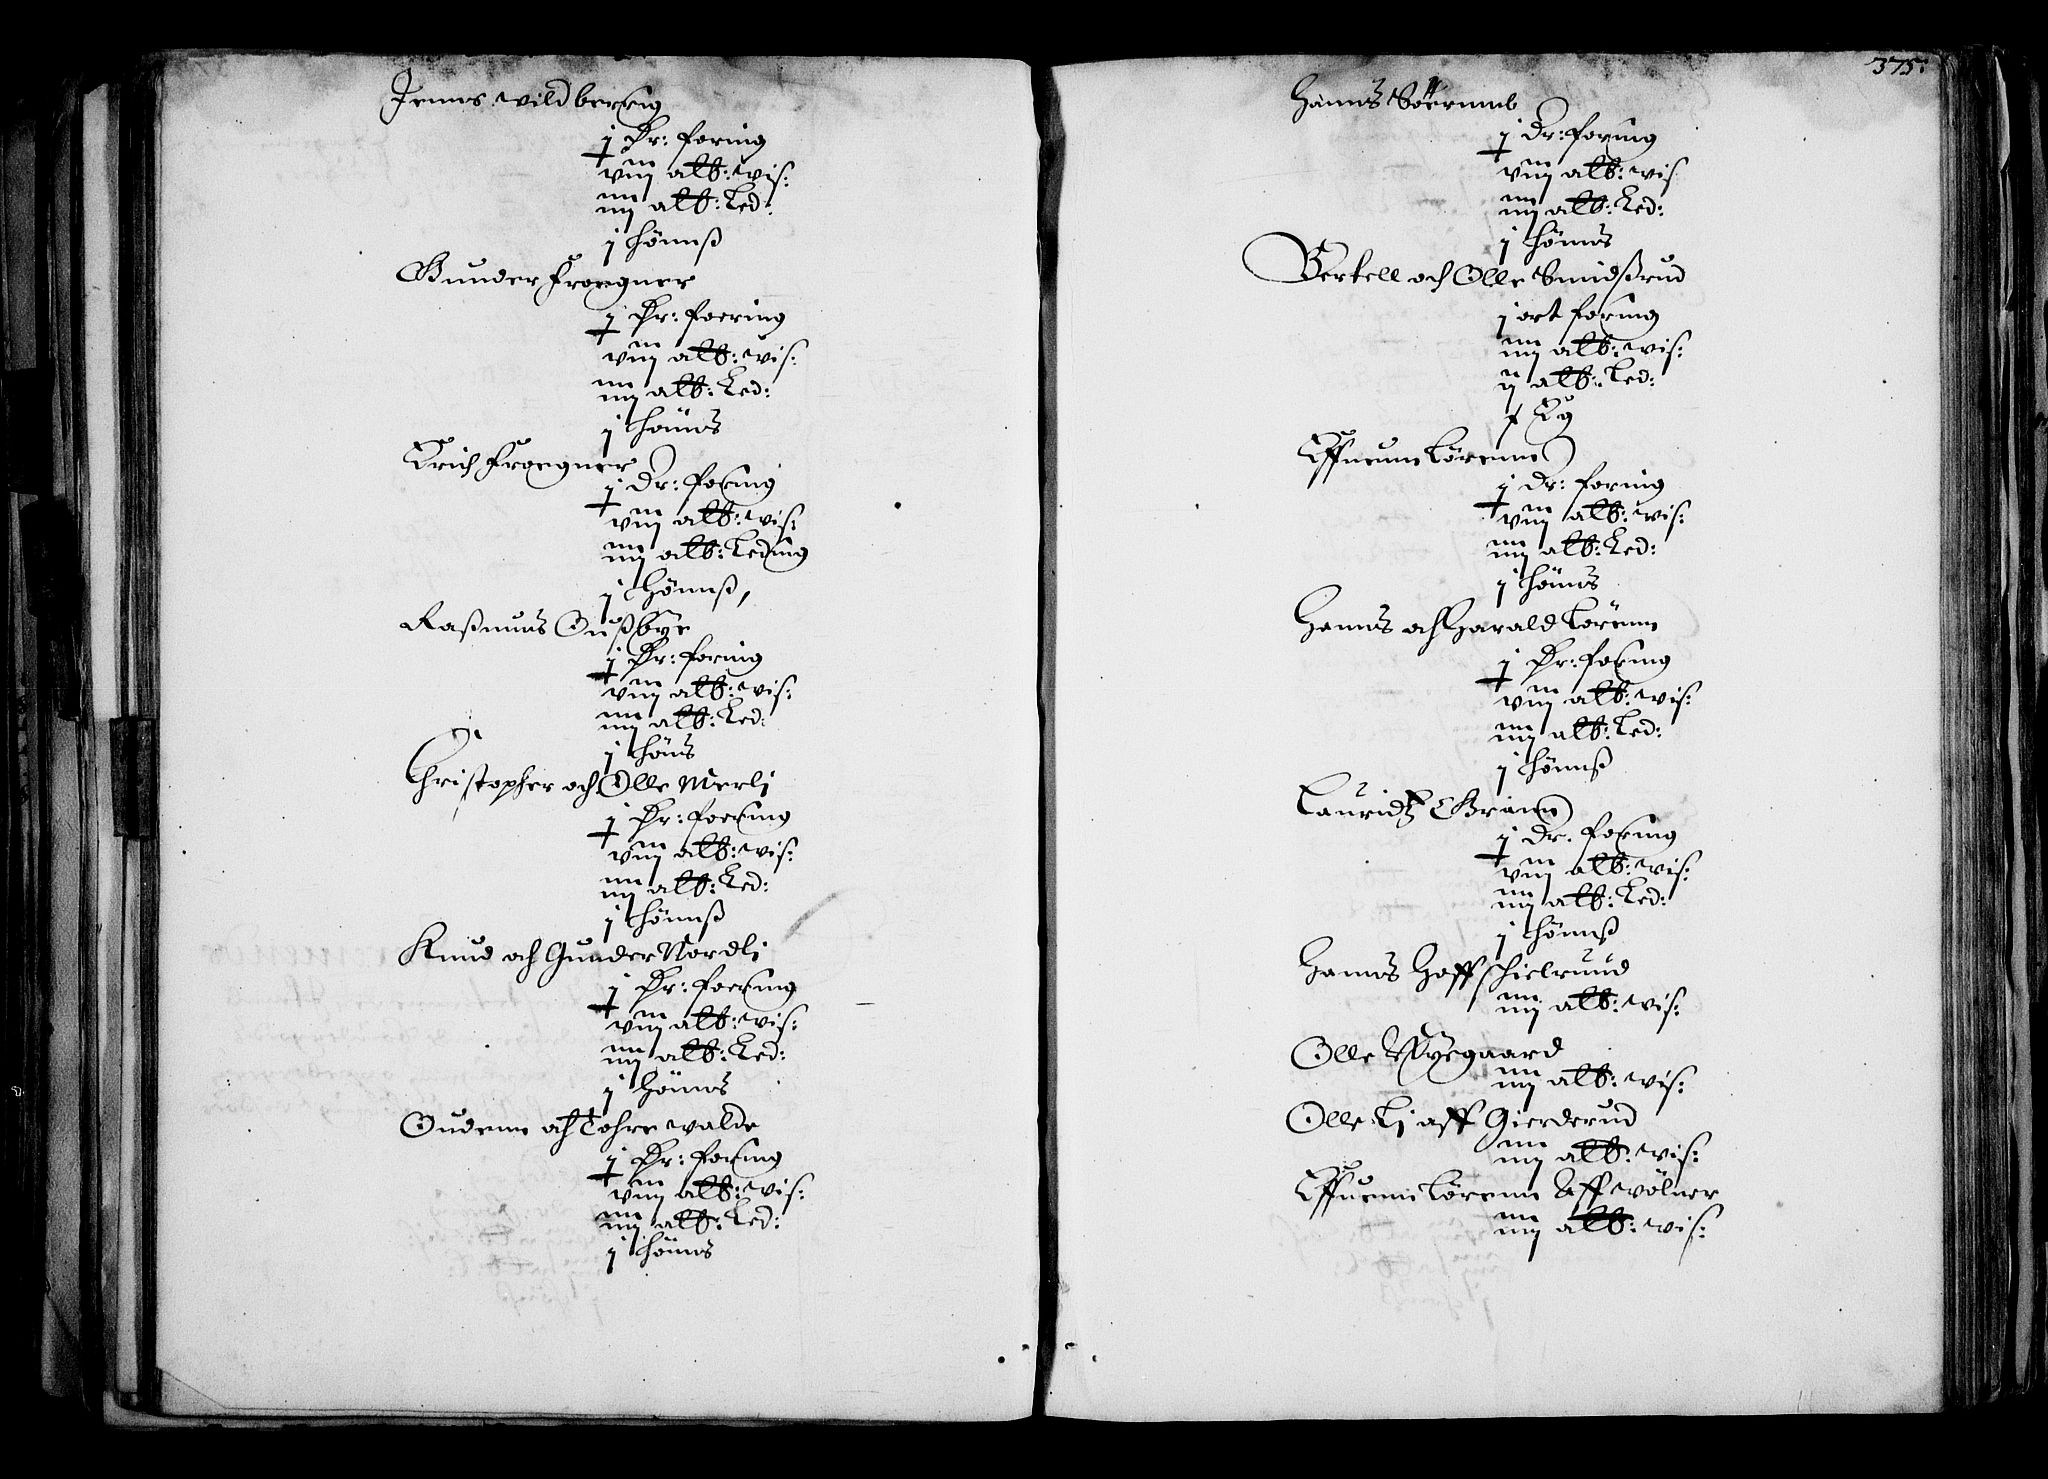 Jenns wildberrig
j Dr: foring
viij alb: wis:
iiij alb: Led:
j hönnß
Gunder Froegner
j Dr: foering
viij alb: wis:
iiij alb: Led:
j hönns
Erich Froegner
j Dr: foring
viij alb: wis:
iiij alb: Leding
j Hönnß,
Raßmuns Gußbye
j Dr: foring
viij alb: wis:
iiij alb: Led:
j höns
Christopher och Olle Merlj
j Dr: foering
viij alb: wis:
iiij alb: Led:
j hönnß
Knud och Gunder Nordlj
j Dr: foering
viij alb: wis:
iiij alb: Led:
j Hönns
Gudenn och Tohre walde
j Dr: foring
viij alb: wis:
iiij alb: Led:
j hönns
375:
Hanns
j Dr: foring
viij alb: wis
iiij alb: Led:
j hönns
Bertell och Olle Smidßrud
j ort foring
iiij alb: wis:
ij alb: Led:
Effuenn Lørenn
j Dr: foring
viij alb: wis:
iiij alb: Led:
j hönns
Hanns och Harald Lörenn
j Dr: foring
viij alb: wis:
iiij alb: Led:
j hönnß
Lauridtz Grann
j Dr. foring
viij alb: wis:
iiij alb: Led:
j hönnß
Hanns Hoff schielruud
iiij alb: wis:
Olle Nyegaard
iiij alb: wis:
Olle Lj aff Gierderud
iiij alb: wis:
Effuenn Lørenn Aff wölner
iiij alb: wis: